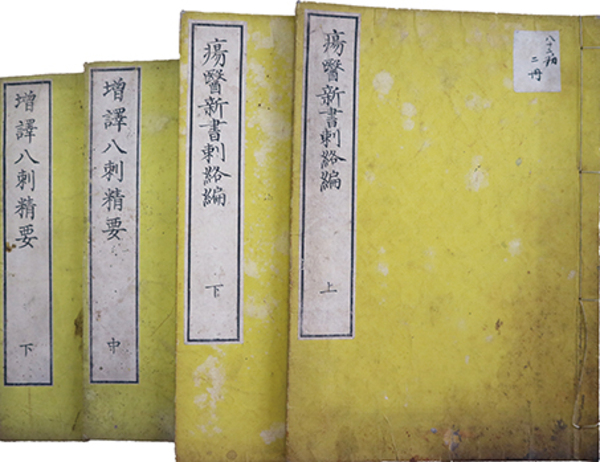 瘍醫新書刺絡編
上
二冊
瘍醫新書刺絡編
下
增譯八刺精要
中
增譯八刺精要
下